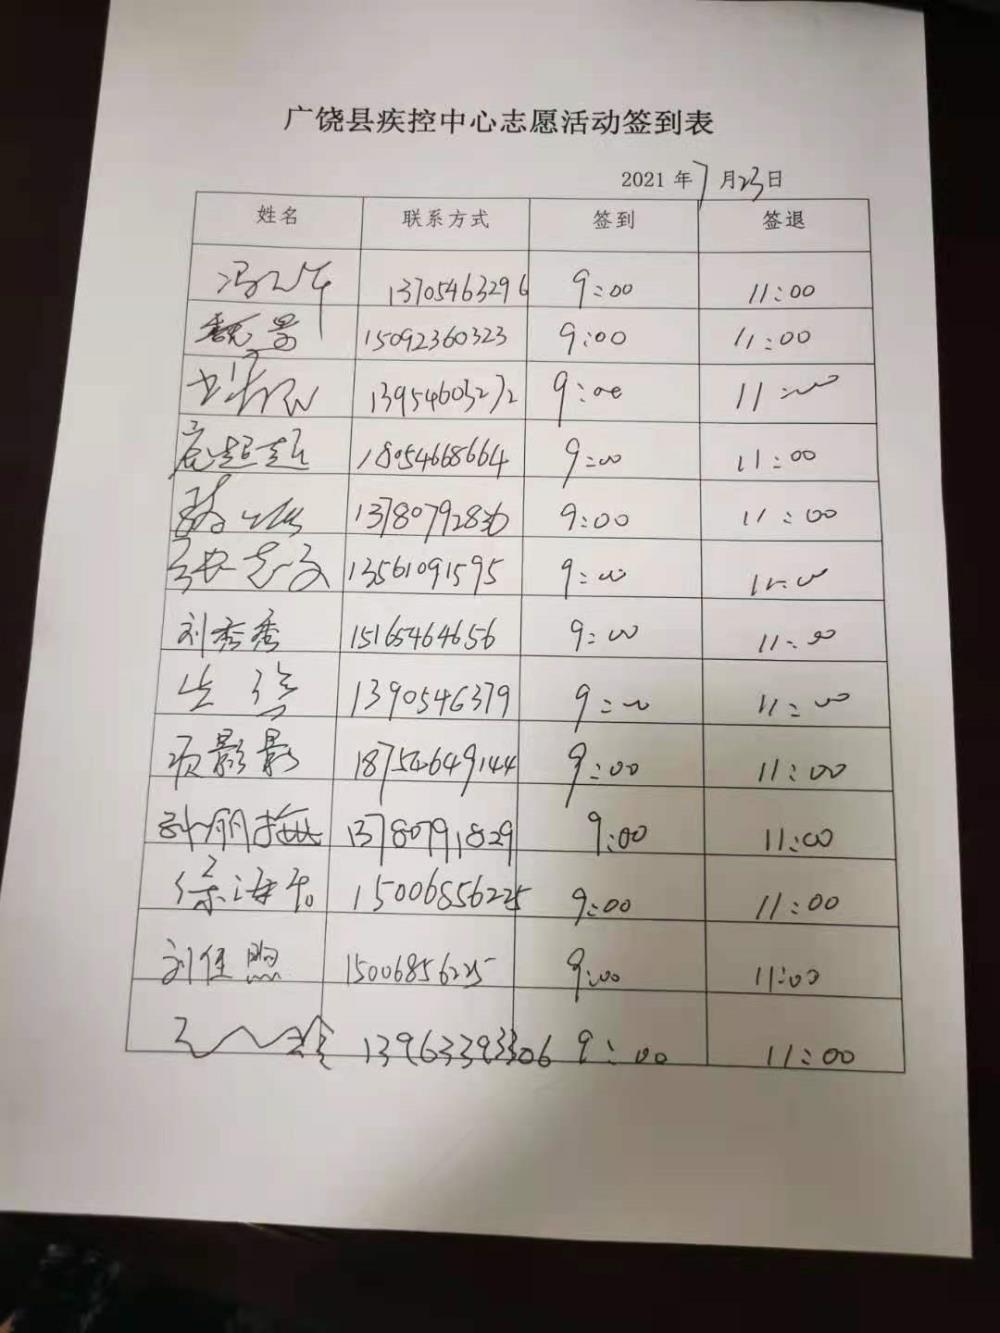 广饶县疾控中心志愿活动签到表
2021 年 7 月 23 日
姓名 联系方式 签到 签退
13705463296 9:00 11:00
魏景 15092360323 9:00 11:00
13954603272 9:00 11:00
扈超超 18054668664 9:00 11:00
13780792836 9:00 11:00
张志文 13561091595 9:00 11:00
刘秀秀 15165464656 9:00 11:00
1390546379 9:00 11:00
项影影 9:00 11:00
孙丽梅 13780791829 9:00 11:00
徐海576 15006856225 9:00 11:00
刘佳照 15006856225 9:00 11:00
13963393306 9:00 11:00